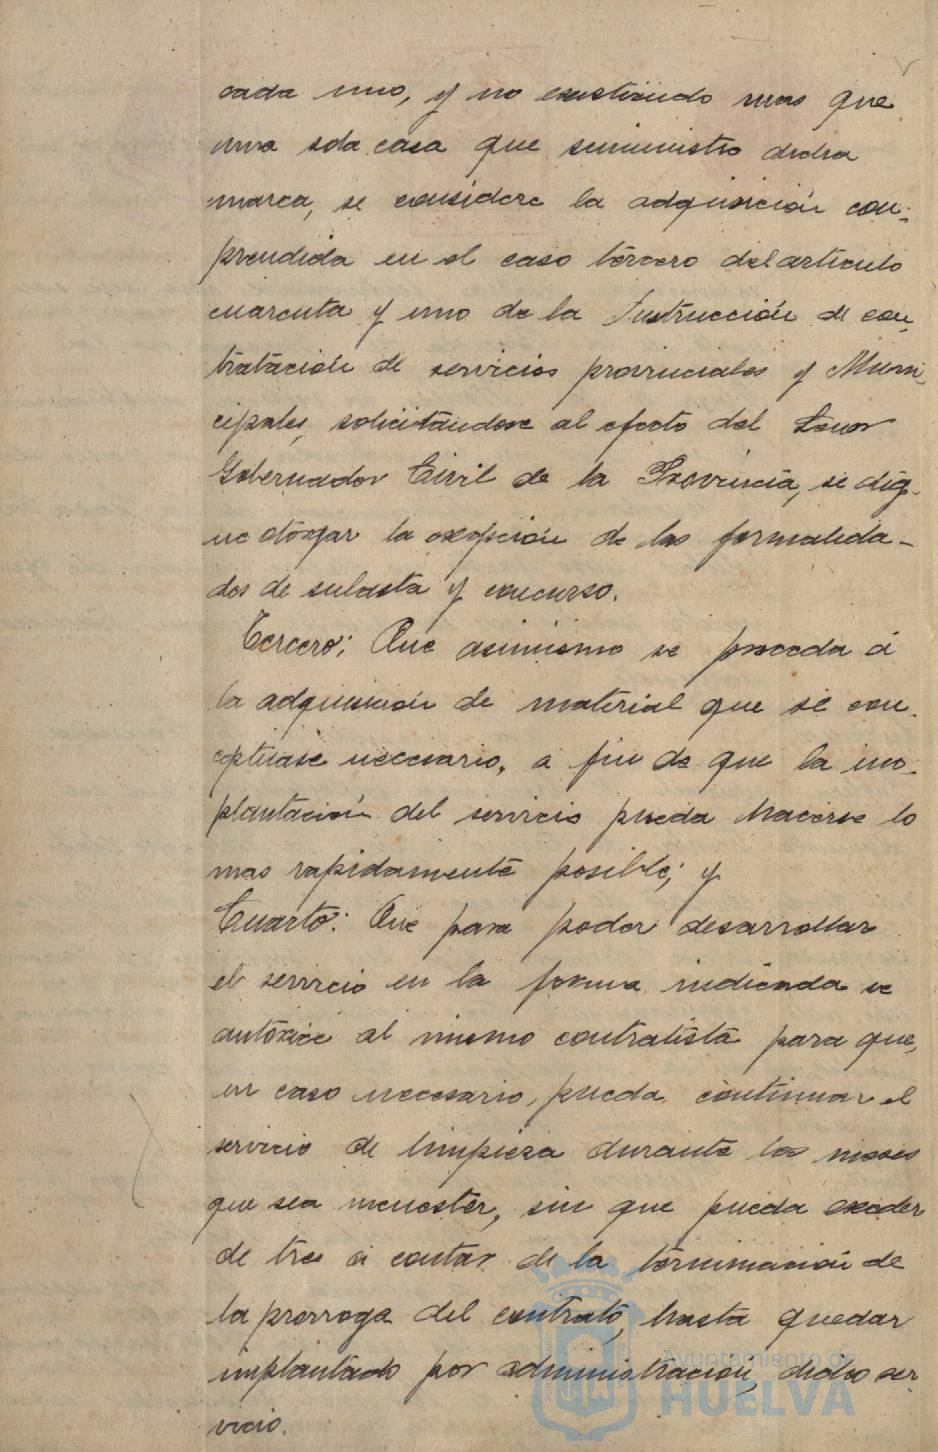 cada uno, y no existiendo mas que
una sola casa que suministre dicha
marca, se considere la adquisición com-
prendida en el caso tercero del artículo
cuarenta y uno de la Instrucción de con-
tratación de servicios provinciales y Muni-
cipales, solicitándose al efecto del Señor
Gobernador Civil de la Provincia, se dig-
ne otorgar la exepción de las formalida-
des de subasta y concurso.
Tercero: Que asimismo se proceda á
la adquisición de material que se con-
ceptuase necesario, a fin de que la im-
plantación del servicio pueda hacerse lo
mas rapidamente posible; y
Cuarto: Que para poder desarrollar
el servicio en la forma indicada se
autorice al mismo contratista para que,
en caso necesario, pueda continuar el
servicio de limpieza durante los meses
que sea menester, sin que pueda exceder
de tres á contar de la terminación de
la prorroga del contrato, hasta quedar
implantado por administración, dicho ser-
vicio.
Ayuntamiento de
HUELVA